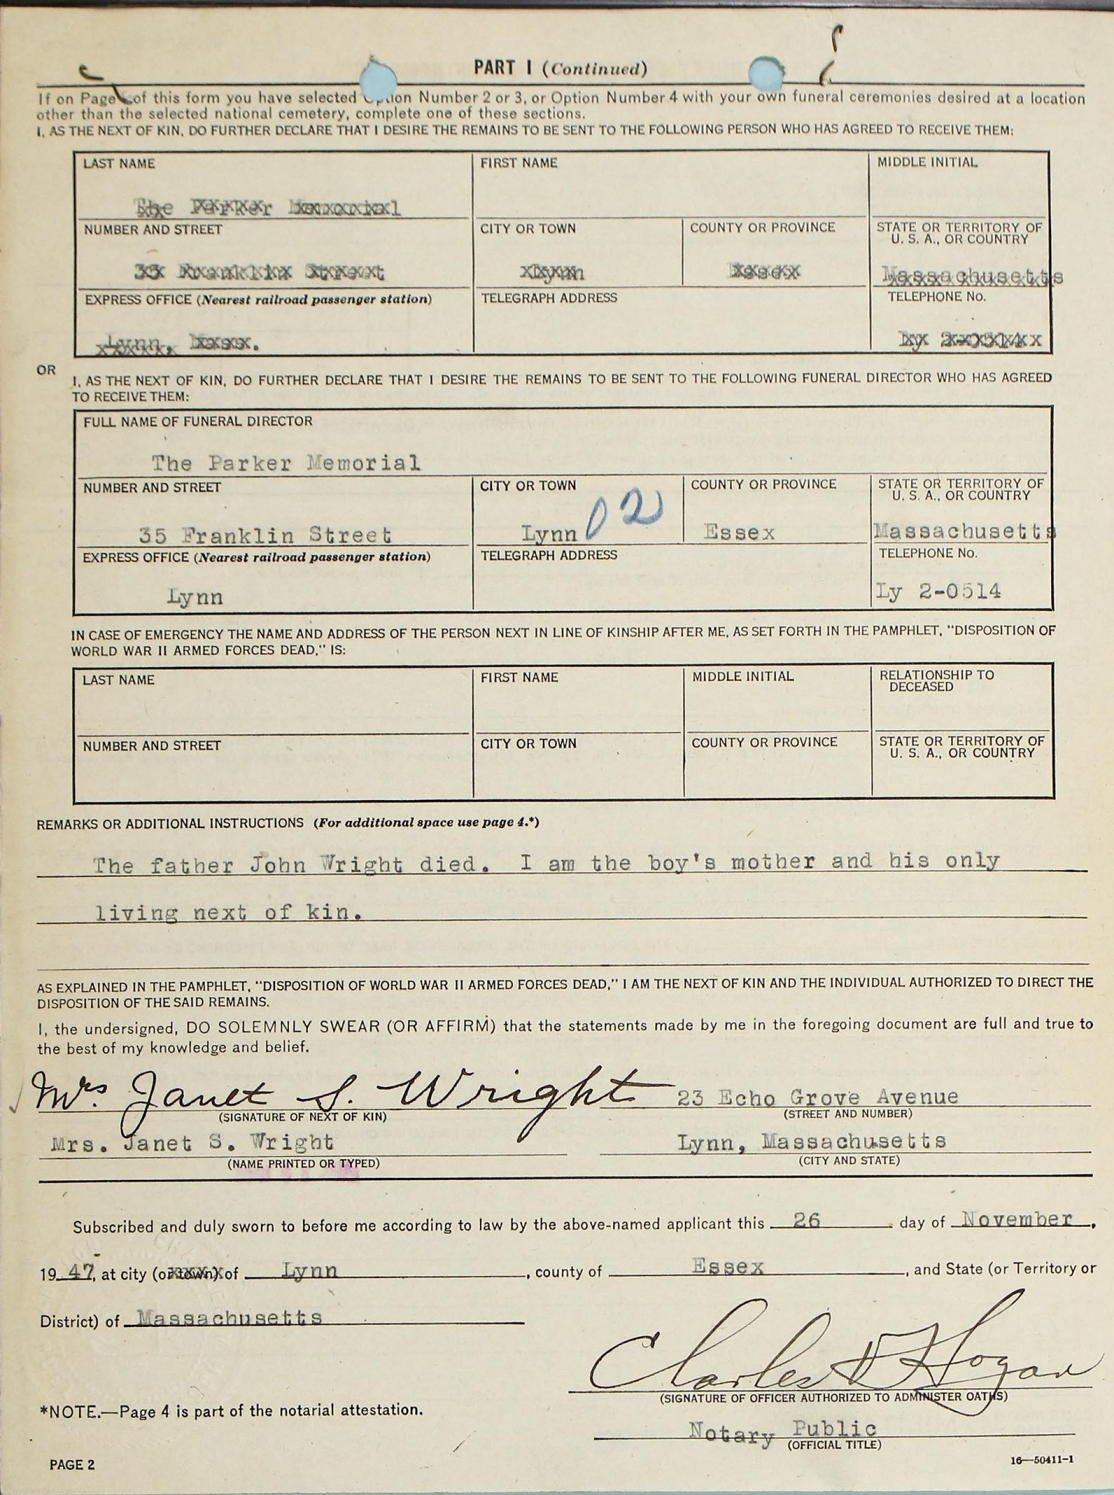 PART I (Continued)
If on Page of this form you have selected Option Number 2 or 3, or Option Number 4 with your own funeral ceremonies desired at a location
other than the selected national cemetery, complete one of these sections.
I, AS THE NEXT OF KIN, DO FURTHER DECLARE THAT I DESIRE THE REMAINS TO BE SENT TO THE FOLLOWING PERSON WHO HAS AGREED TO RECEIVE THEM:
LAST NAME FIRST NAME MIDDLE INITIAL
The Parker Memorial
NUMBER AND STREET CITY OR TOWN COUNTY OR PROVINCE STATE OR TERRITORY OF
U. S. A., OR COUNTRY
35 Franklin Street Lynn Essex Massachusetts
EXPRESS OFFICE (Nearest railroad passenger station) TELEGRAPH ADDRESS TELEPHONE No.
Lynn, Mass. Ly 2-0514
OR
I, AS THE NEXT OF KIN, DO FURTHER DECLARE THAT I DESIRE THE REMAINS TO BE SENT TO THE FOLLOWING FUNERAL DIRECTOR WHO HAS AGREED
TO RECEIVE THEM:
FULL NAME OF FUNERAL DIRECTOR
The Parker Memorial
NUMBER AND STREET CITY OR TOWN COUNTY OR PROVINCE STATE OR TERRITORY OF
U. S. A., OR COUNTRY
35 Franklin Street Lynn 02 Essex Massachusetts
EXPRESS OFFICE (Nearest railroad passenger station) TELEGRAPH ADDRESS TELEPHONE No.
Lynn Ly 2-0514
IN CASE OF EMERGENCY THE NAME AND ADDRESS OF THE PERSON NEXT IN LINE OF KINSHIP AFTER ME, AS SET FORTH IN THE PAMPHLET, "DISPOSITION OF
WORLD WAR II ARMED FORCES DEAD," IS:
LAST NAME FIRST NAME MIDDLE INITIAL RELATIONSHIP TO
DECEASED
NUMBER AND STREET CITY OR TOWN COUNTY OR PROVINCE STATE OR TERRITORY OF
U. S. A., OR COUNTRY
REMARKS OR ADDITIONAL INSTRUCTIONS (For additional space use page 4.*)
The father John Wright died. I am the boy's mother and his only
living next of kin.
AS EXPLAINED IN THE PAMPHLET, "DISPOSITION OF WORLD WAR II ARMED FORCES DEAD," I AM THE NEXT OF KIN AND THE INDIVIDUAL AUTHORIZED TO DIRECT THE
DISPOSITION OF THE SAID REMAINS.
I, the undersigned, DO SOLEMNLY SWEAR (OR AFFIRM) that the statements made by me in the foregoing document are full and true to
the best of my knowledge and belief.
Mrs. Janet S. Wright 23 Echo Grove Avenue
(SIGNATURE OF NEXT OF KIN) (STREET AND NUMBER)
Mrs. Janet S. Wright Lynn, Massachusetts
(NAME PRINTED OR TYPED) (CITY AND STATE)
Subscribed and duly sworn to before me according to law by the above-named applicant this 26 day of November,
1947, at city (or town) of Lynn, county of Essex, and State (or Territory or
District) of Massachusetts
Charles D Hogan
(SIGNATURE OF OFFICER AUTHORIZED TO ADMINISTER OATHS)
*NOTE.—Page 4 is part of the notarial attestation.
Notary Public
(OFFICIAL TITLE)
PAGE 2 16—50411-1